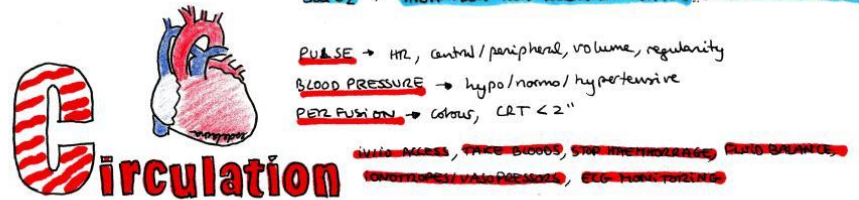 PULSE → HR, central/peripheral, volume, regularity
BLOOD PRESSURE → hypo/normo/hypertensive
PERFUSION → colour, CRT < 2"
Circulation
iv/io ACCESS, TAKE BLOODS, STOP HAEMORRAGE, FLUID BALANCE,
IONOTROPES/VASOPRESSORS, ECG MONITORING